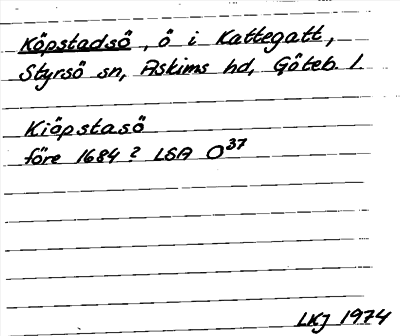 Köpstadsö, ö i Kattegatt,
Styrsö sn, Askims hd, Göteb. l.
Kiöpstasö
före 1684? LSA O37
LKJ 1974